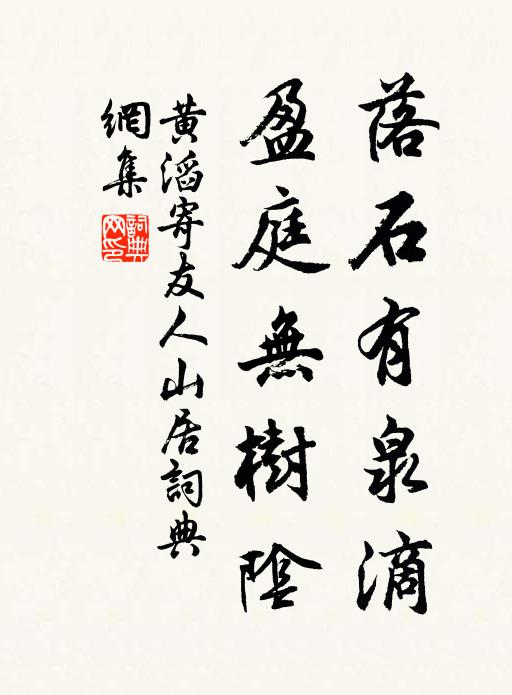 落石有泉滴
盈庭無樹陰
黄滔寄友人山居詞典
網集
詞典
网印